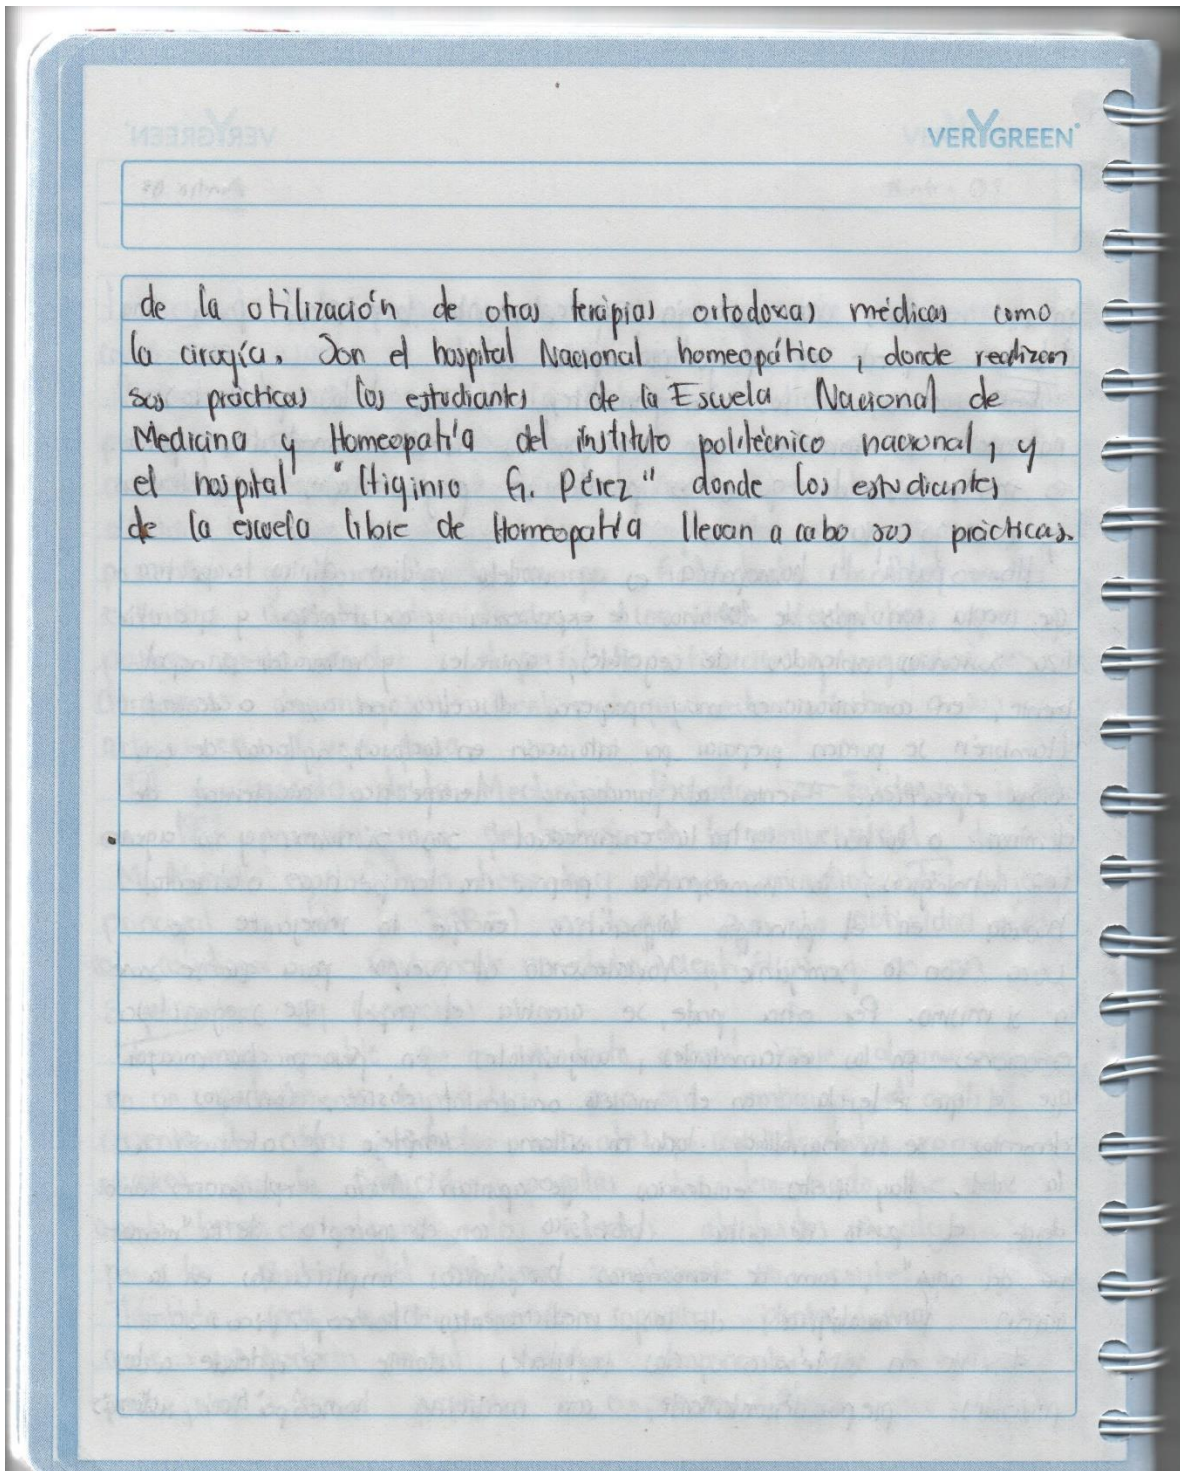 VERYGREEN
de la utilización de otras terápias ortodoxas médicas como
la cirugía. Son el hospital Nacional homeopático, donde realizan
sus prácticas los estudiantes de la Escuela Nacional de
Medicina y Homeopatía del instituto politécnico nacional, y
el hospital "Higinio G. Pérez" donde los estudiantes
de la escuela libre de Homeopatía llevan a cabo sus prácticas.